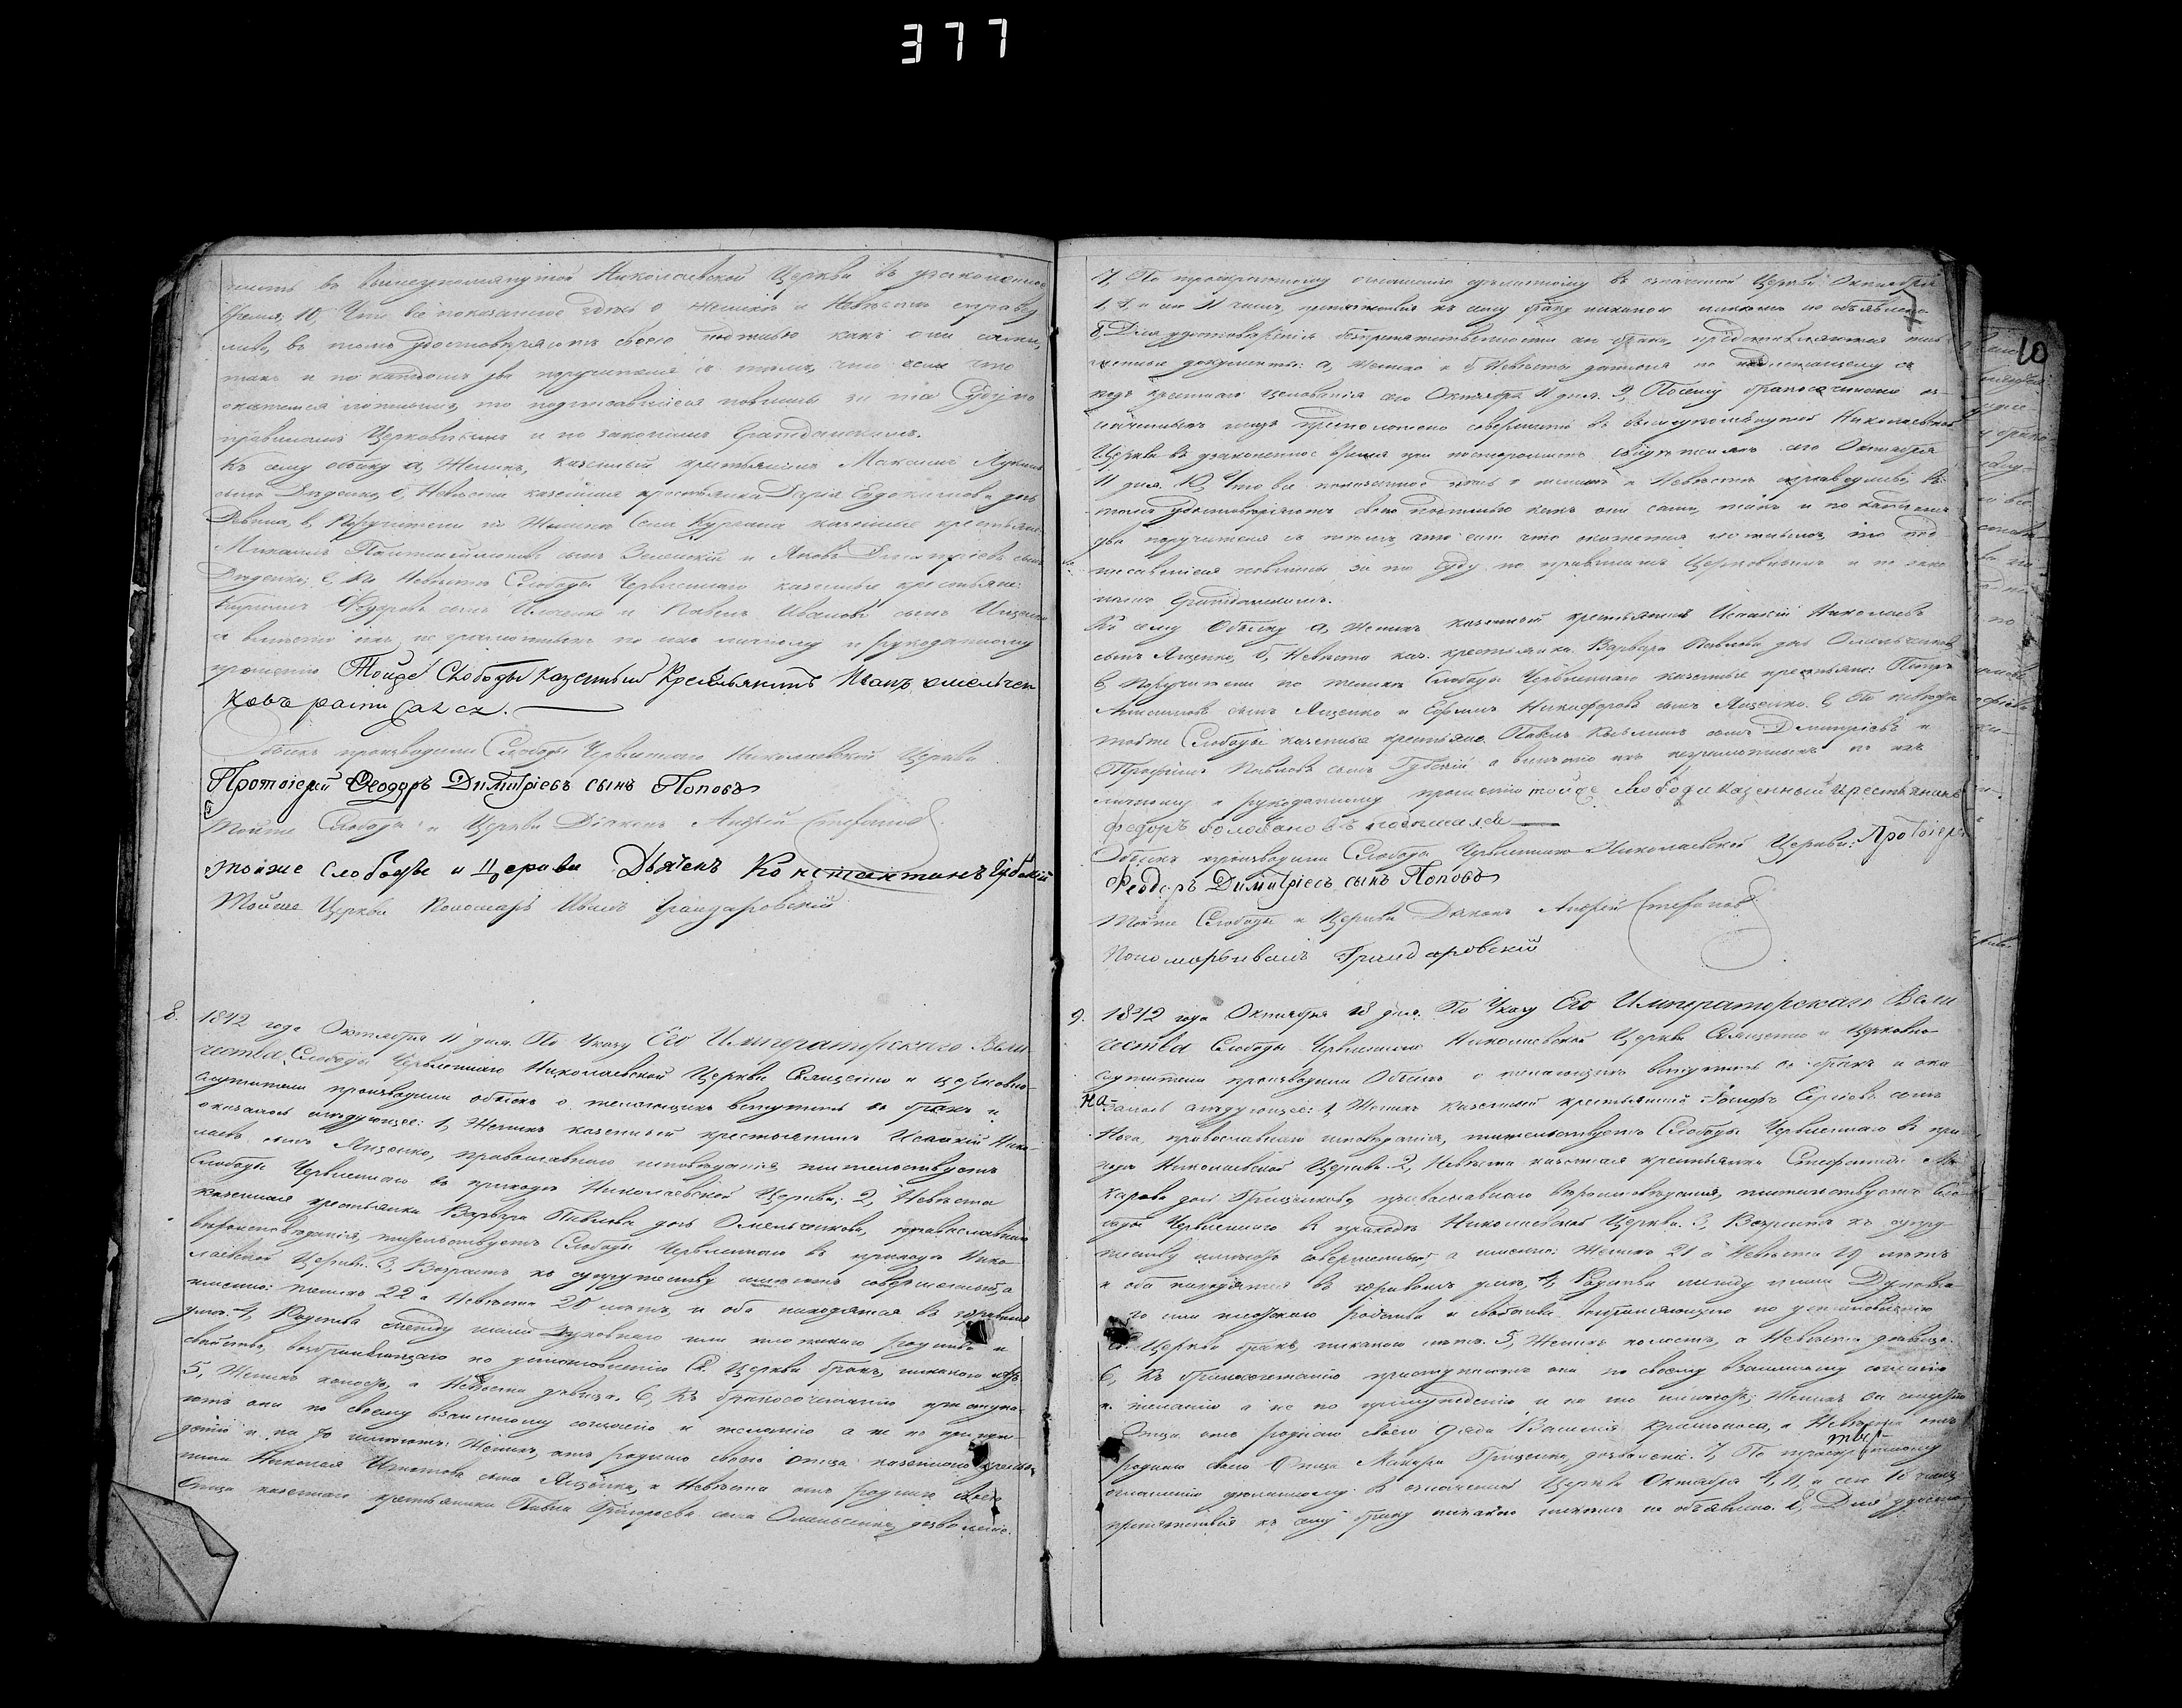 377
10
7
жить въ вышеупомянутой Николаевской Церкви въ узаконенное
время; 10, Что все показанное здесь о женихе и Невесте справед
ливо, въ томъ удостоверяютъ своею подписью какъ они сами,
такъ и по каждомъ два поручителя съ темъ, что если что
окажется ложнымъ, то подписавшіеся повинны за то суду по
правиламъ Церковнымъ и по законамъ Гражданскимъ.
Къ сему обыску а, Женихъ, казенный крестьянинъ Максимъ
сынъ Деденко, б, Невеста казенная крестьянка Дарія Евдокимова дочь
в, Поручители по Женихе казенные крестьяне
Михаилъ сынъ Зеленскій и Яковъ Дмитріевъ сынъ
Деденко; г, По Невесте Слободы Червленнаго казенные крестьяне:
Кирилъ Федоровъ сынъ и Павелъ Ивановъ сынъ
а вместо ихъ не грамотныхъ по ихъ личному и рукоданному
прошенію Тойже Слободы казенный Крестьянинъ Иванъ омельчен
ковъ
Обыскъ производили Слободы Червленнаго Николаевской Церкви
Протоіерей Феодоръ Димитріевъ сынъ Поповъ
Тойже Слободы и Церкви Діаконъ Андрей Стефановъ
тойже слободы и Церкви Дьячекъ Константинъ
Тойже Церкви Пономарь Иванъ Грандаровскій
8. 1842 года Октября 11 дня. По Указу Его Императорскаго Вели
чества Слободы Червленнаго Николаевской Церкви Священно и церковно-
служители производили обыскъ о желающихъ вступить въ бракъ и
оказалось следующее: 1, Женихъ казенный крестьянинъ Исаакій Нико-
лаевъ сынъ Ященко, православнаго исповеданія, жительствуетъ
Слободы Червленнаго въ приходе Николаевской Церкви; 2, Невеста
казенная крестьянка Варвара Павлова дочь Омельченкова, православнаго
вероисповеданія, жительствуетъ Слободы Червленнаго въ приходе Нико-
лаевской Церкви. 3, Возрастъ къ супружеству имеютъ совершенный, а
именно: женихъ 22 а Невеста 20 летъ, и оба находятся въ здравомъ
уме. 4, Родства между ними Духовнаго или плотскаго родства и
свойства, возбраняющаго по установленію Св. Церкви бракъ, никакого нетъ
5, Женихъ холостъ, а Невеста девица. 6, Къ бракосочетанію приступа-
ютъ они по своему взаимному согласію и желанію а не по принуж-
денію и на то имеютъ: Женихъ, отъ роднаго своего отца казеннаго крестья
нина Николая Игнатова сына Ященка, а Невеста отъ роднаго своего
Отца казеннаго крестьянина Павла Григорьева сына дозволеніе.
7, По троекратному оглашенію сделанному въ означенной Церкви Октября
1, 4 и по 11 число, препятствія къ сему браку никакого никемъ не объявлено
8, Для удостоверенія безпрепятственности сего брака, представляются
документы: а, Жениха и б, Невесты данныя по надлежащему съ
подъ крестнаго целованія сего Октября 11 дня. 9, По сему бракосочетаніе оз-
наченныхъ лицъ предположено совершить въ вышеупомянутой Николаевской
Церкви въ узаконенное время при постороннихъ свидетеляхъ сего Октября
11 дня. 10, Что все показанное здесь о женихе и Невесте справедливо, въ
томъ удостоверяютъ своею подписью какъ они сами, такъ и по каждомъ
два поручителя съ темъ, что если что окажется ложнымъ, то под-
писавшіеся повинны за то суду по правиламъ Церковнымъ и по зако
намъ Гражданскимъ.
Къ сему Обыску а, Женихъ казенный крестьянинъ Исаакій Николаевъ
сынъ Ященко, б, Невеста каз. крестьянка Варвара Павлова дочь Омельченкова
в, Поручители по женихе Слободы Червленнаго казенные крестьяне: Петръ
сынъ Ященко и Ефимъ Никифоровъ сынъ Ященко. г, По невесте
тойже Слободы казенные крестьяне Павелъ сынъ Дмитріевъ и
Трофимъ Павловъ сынъ а вместо ихъ неграмотныхъ по ихъ
личному и рукоданному прошенію тойже слободы казенный крестьянинъ
федоръ болобановъ подписался
Обыскъ производили Слободы Червленнаго Николаевской Церкви: Протоіерей
Феодоръ Димитріевъ сынъ Поповъ
Тойже Слободы и Церкви Діаконъ Андрей Стефановъ
Пономарь Иванъ Грандаровскій
9. 1842 года Октября 18 дня. По Указу Его Императорскаго Вели
чества Слободы Червленнаго Николаевской Церкви Священно и церковно
служители производили Обыскъ о желающихъ вступить въ бракъ и ока
залось следующее: 1, Женихъ казенный крестьянинъ Сергіевъ сынъ
Нога, православнаго исповеданія, жительствуетъ Слободы Червленнаго въ при
ходе Николаевской Церкви. 2, Невеста казенная крестьянка Стефанида Ма
карова дочь Грищенкова, православнаго вероисповеданія, жительствуетъ Сло
боды Червленнаго въ приходе Николаевской Церкви. 3, Возрастъ къ супру-
жеству имеютъ совершенный, а именно: Женихъ 21 а Невеста 19 летъ
и оба находятся въ здравомъ уме, 4, Родства между ними Духовна-
го или плотскаго родства и свойства возбраняющаго по установленію
Св. Церкви бракъ, никакого нетъ. 5, Женихъ холостъ, а Невеста девица.
6, Къ бракосочетанію приступаютъ они по своему взаимному согласію
и желанію а не по принужденію и на то имеютъ; Женихъ
Отца отъ роднаго своего дяди Василія а Невеста отъ
роднаго своего Отца Макара Грищенка дозволеніе. 7, По троекратному
оглашенію сделанному въ означенной Церкви Октября 4, 11, и сего 18 числъ
препятствія къ сему браку никакого никемъ не объявлено. 8, Для удосто